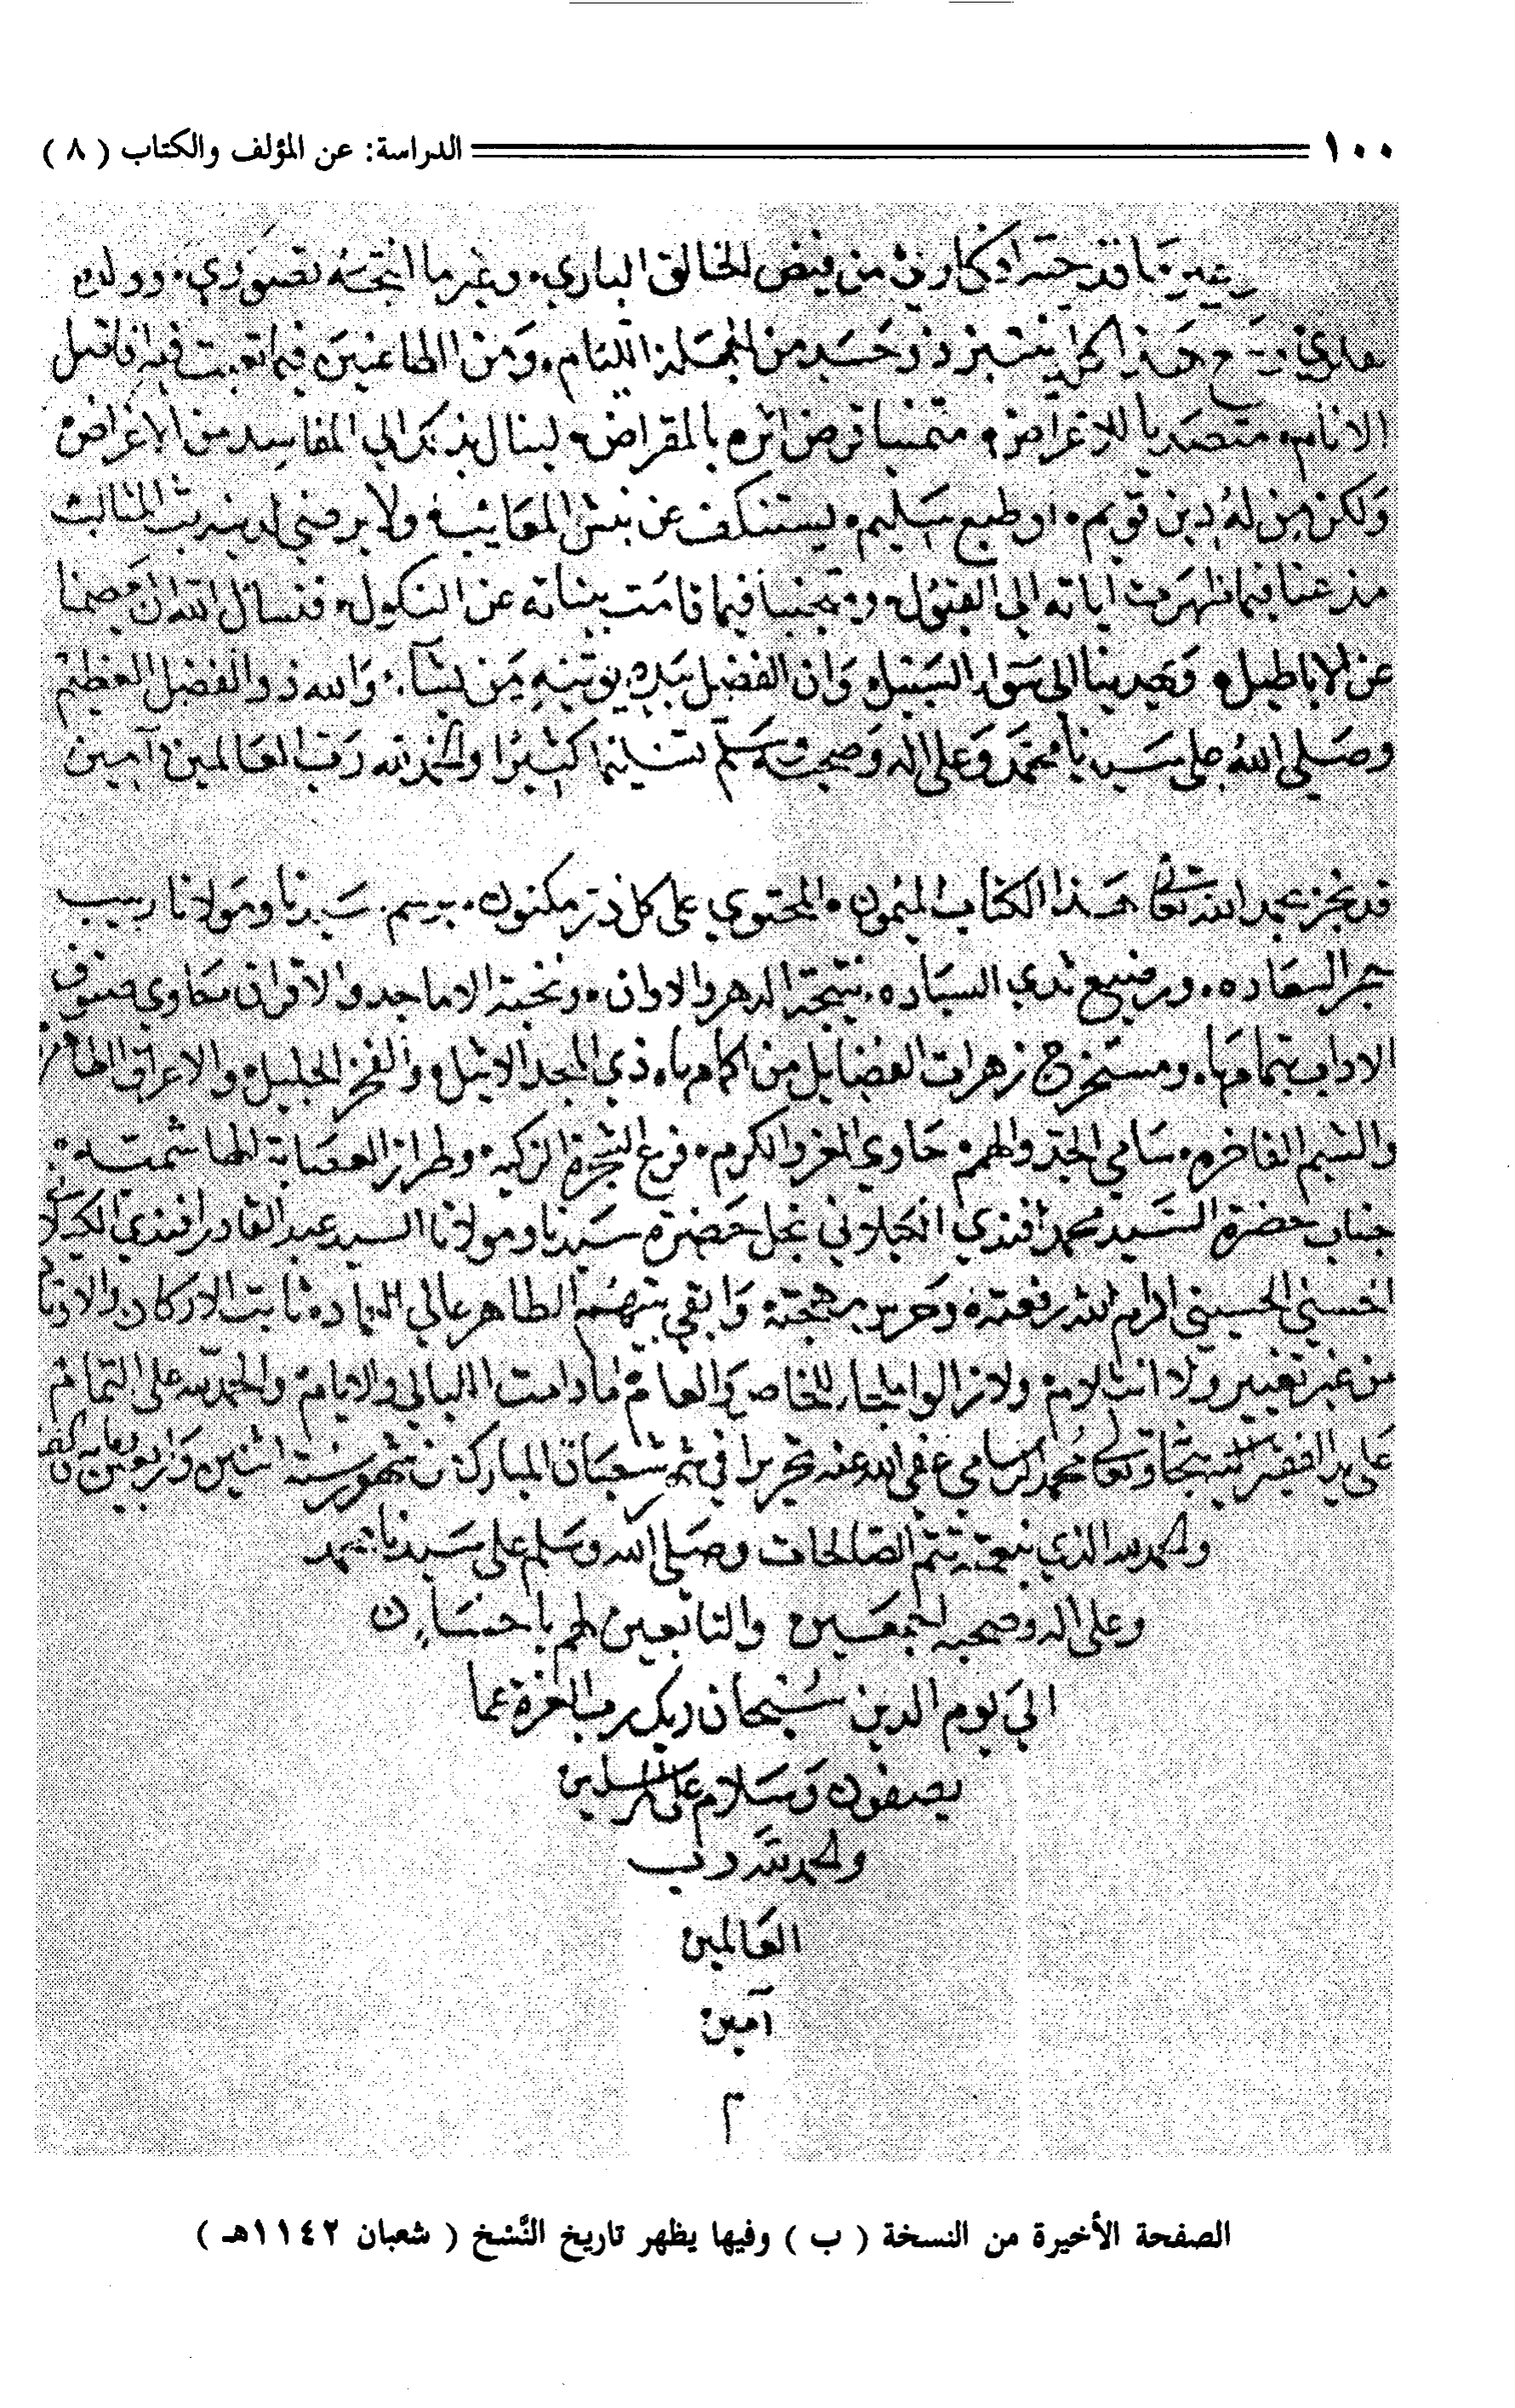 ١٠٠ الدراسة: عن المؤلف والكتاب ( ٨ )
من فيض الخالق الباري. وغير ما انتجته تصوري. وولده
هذا كل ذو حسد من الجملة اللئام. ومن الطاعنين فيما تعبت فيه فاقبل
الانام. متصديا للاغراض. متمنيا قرض اثره بالمقراض. لينال بذكر المفاسد من الاغراض
ولكن من له دين قويم. او طبع سليم. يستنكف عن نبش المعايب. ولا يرضى لدينه المثالب
مذعنا فيما ظهرت اياته الى القبول. ومجتنبا فيما قامت بيناته عن النكول. فنسال الله ان يعصمنا
عن الاباطيل. ويهدينا الى سواء السبيل. وان الفضل بيده يوتيه من يشآء. والله ذو الفضل العظيم
وصلى الله على سيدنا محمد وعلى اله وصحبه وسلم تسليما كثيرا والحمد لله رب العالمين آمين
قد نجز بحمد الله تعالى هذا الكتاب الميمون. المحتوي على كل در مكنون. برسم. سيدنا ومولانا ربيب
حجر السعاده. ورضيع ثدي السياده. نتيجة الدهر والاوان. ونخبة الاماجد والاقران حاوي صنوف
الاداب بتمامها. ومستخرج زهرات الفضايل من اكمامها. ذي المجد الاثيل. والفخر الجليل. والاعراق الطاهره
والشيم الفاخره. سامي الجد والهمم. حاوي العز والكرم. فرع الشجرة الزكيه. وطراز العصابة الهاشميه.
جناب حضرة السيد محمد افندي الكيلاني نجل حضرة سيدنا ومولانا السيد عبد القادر افندي الكيلاني
الحسني الحسيني ادام الله رفعته وحرس مهجته وابقى بيتهم الطاهر عالي العماد. ثابت الاركان والاوتاد
من غير تغيير ولا انثلام. ولا زالوا ملجاء للخاص والعام ما دامت الليالي والايام. والحمد لله على التمام
على يد افقر تعالى محمد عفي الله عنه تحريرا في شعبان المبارك من شهور سنة اثنين واربعين ومايه والف
والحمد لله الذي بنعمته تتم الصالحات وصلى الله وسلم على سيدنا محمد
وعلى اله وصحبه اجمعين والتابعين لهم باحسان
الى يوم الدين سبحان ربك رب العزة عما
يصفون وسلام على المرسلين
والحمد لله رب
العالمين
آمين
م
الصفحة الأخيرة من النسخة ( ب ) وفيها يظهر تاريخ النَّسْخ ( شعبان ١١٤٢هـ )